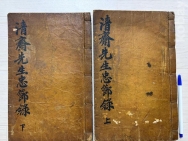 清齋先生忠節錄
上
清齋先生忠節錄
下